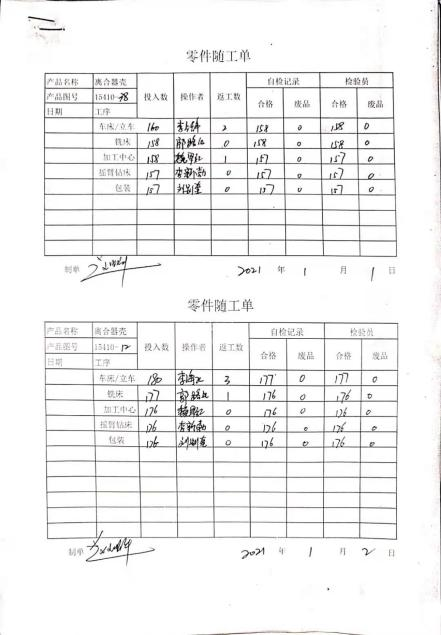 零件随工单
产品名称 离合器壳 投入数 操作者 返工数 自检记录 检验员
产品图号 15410-38 合格 废品 合格 废品
日期 工序
车床/立车 160 2 158 0 158 0
铣床 158 郭晓红 0 158 0 158 0
加工中心 158 1 157 0 157 0
摇臂钻床 157 李新勋 0 157 0 157 0
包装 157 0 157 0 157 0
制单 2021 年 1 月 1 日
零件随工单
产品名称 离合器壳 投入数 操作者 返工数 自检记录 检验员
产品图号 15410-12 合格 废品 合格 废品
日期 工序
车床/立车 180 3 177 0 177 0
铣床 177 郭晓红 1 176 0 176 0
加工中心 176 0 176 0 176 0
摇臂钻床 176 李新勋 0 176 0 176 0
包装 176 0 176 0 176 0
制单 2021 年 1 月 2 日